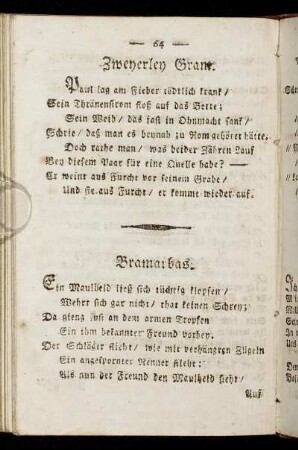 — 64 —
Zweyerley Gram.
Paul lag am Fieber tödtlich krank/
Sein Thränenstrom floß auf das Bette;
Sein Weib/ das fast in Ohnmacht sank/
Schrie/ daß man es beynah zu Rom gehört hätte.
Doch rathe man/ was beider Zähren Lauf
Bey diesem Paar für eine Quelle habe? —
Er weint aus Furcht vor seinem Grabe/
Und sie aus Furcht/ er komme wieder auf.
Bramarbas.
Ein Maulheld ließ sich tüchtig klopfen/
Wehrt sich gar nicht/ that keinen Schrey;
Da gieng just an dem armen Tropfen
Ein ihm bekannter Freund vorbey.
Der Schläger flieht/ wie mit verhängten Zügeln
Ein angespornter Renner flieht:
Als nun der Freund den Maulheld sieht/
Auf